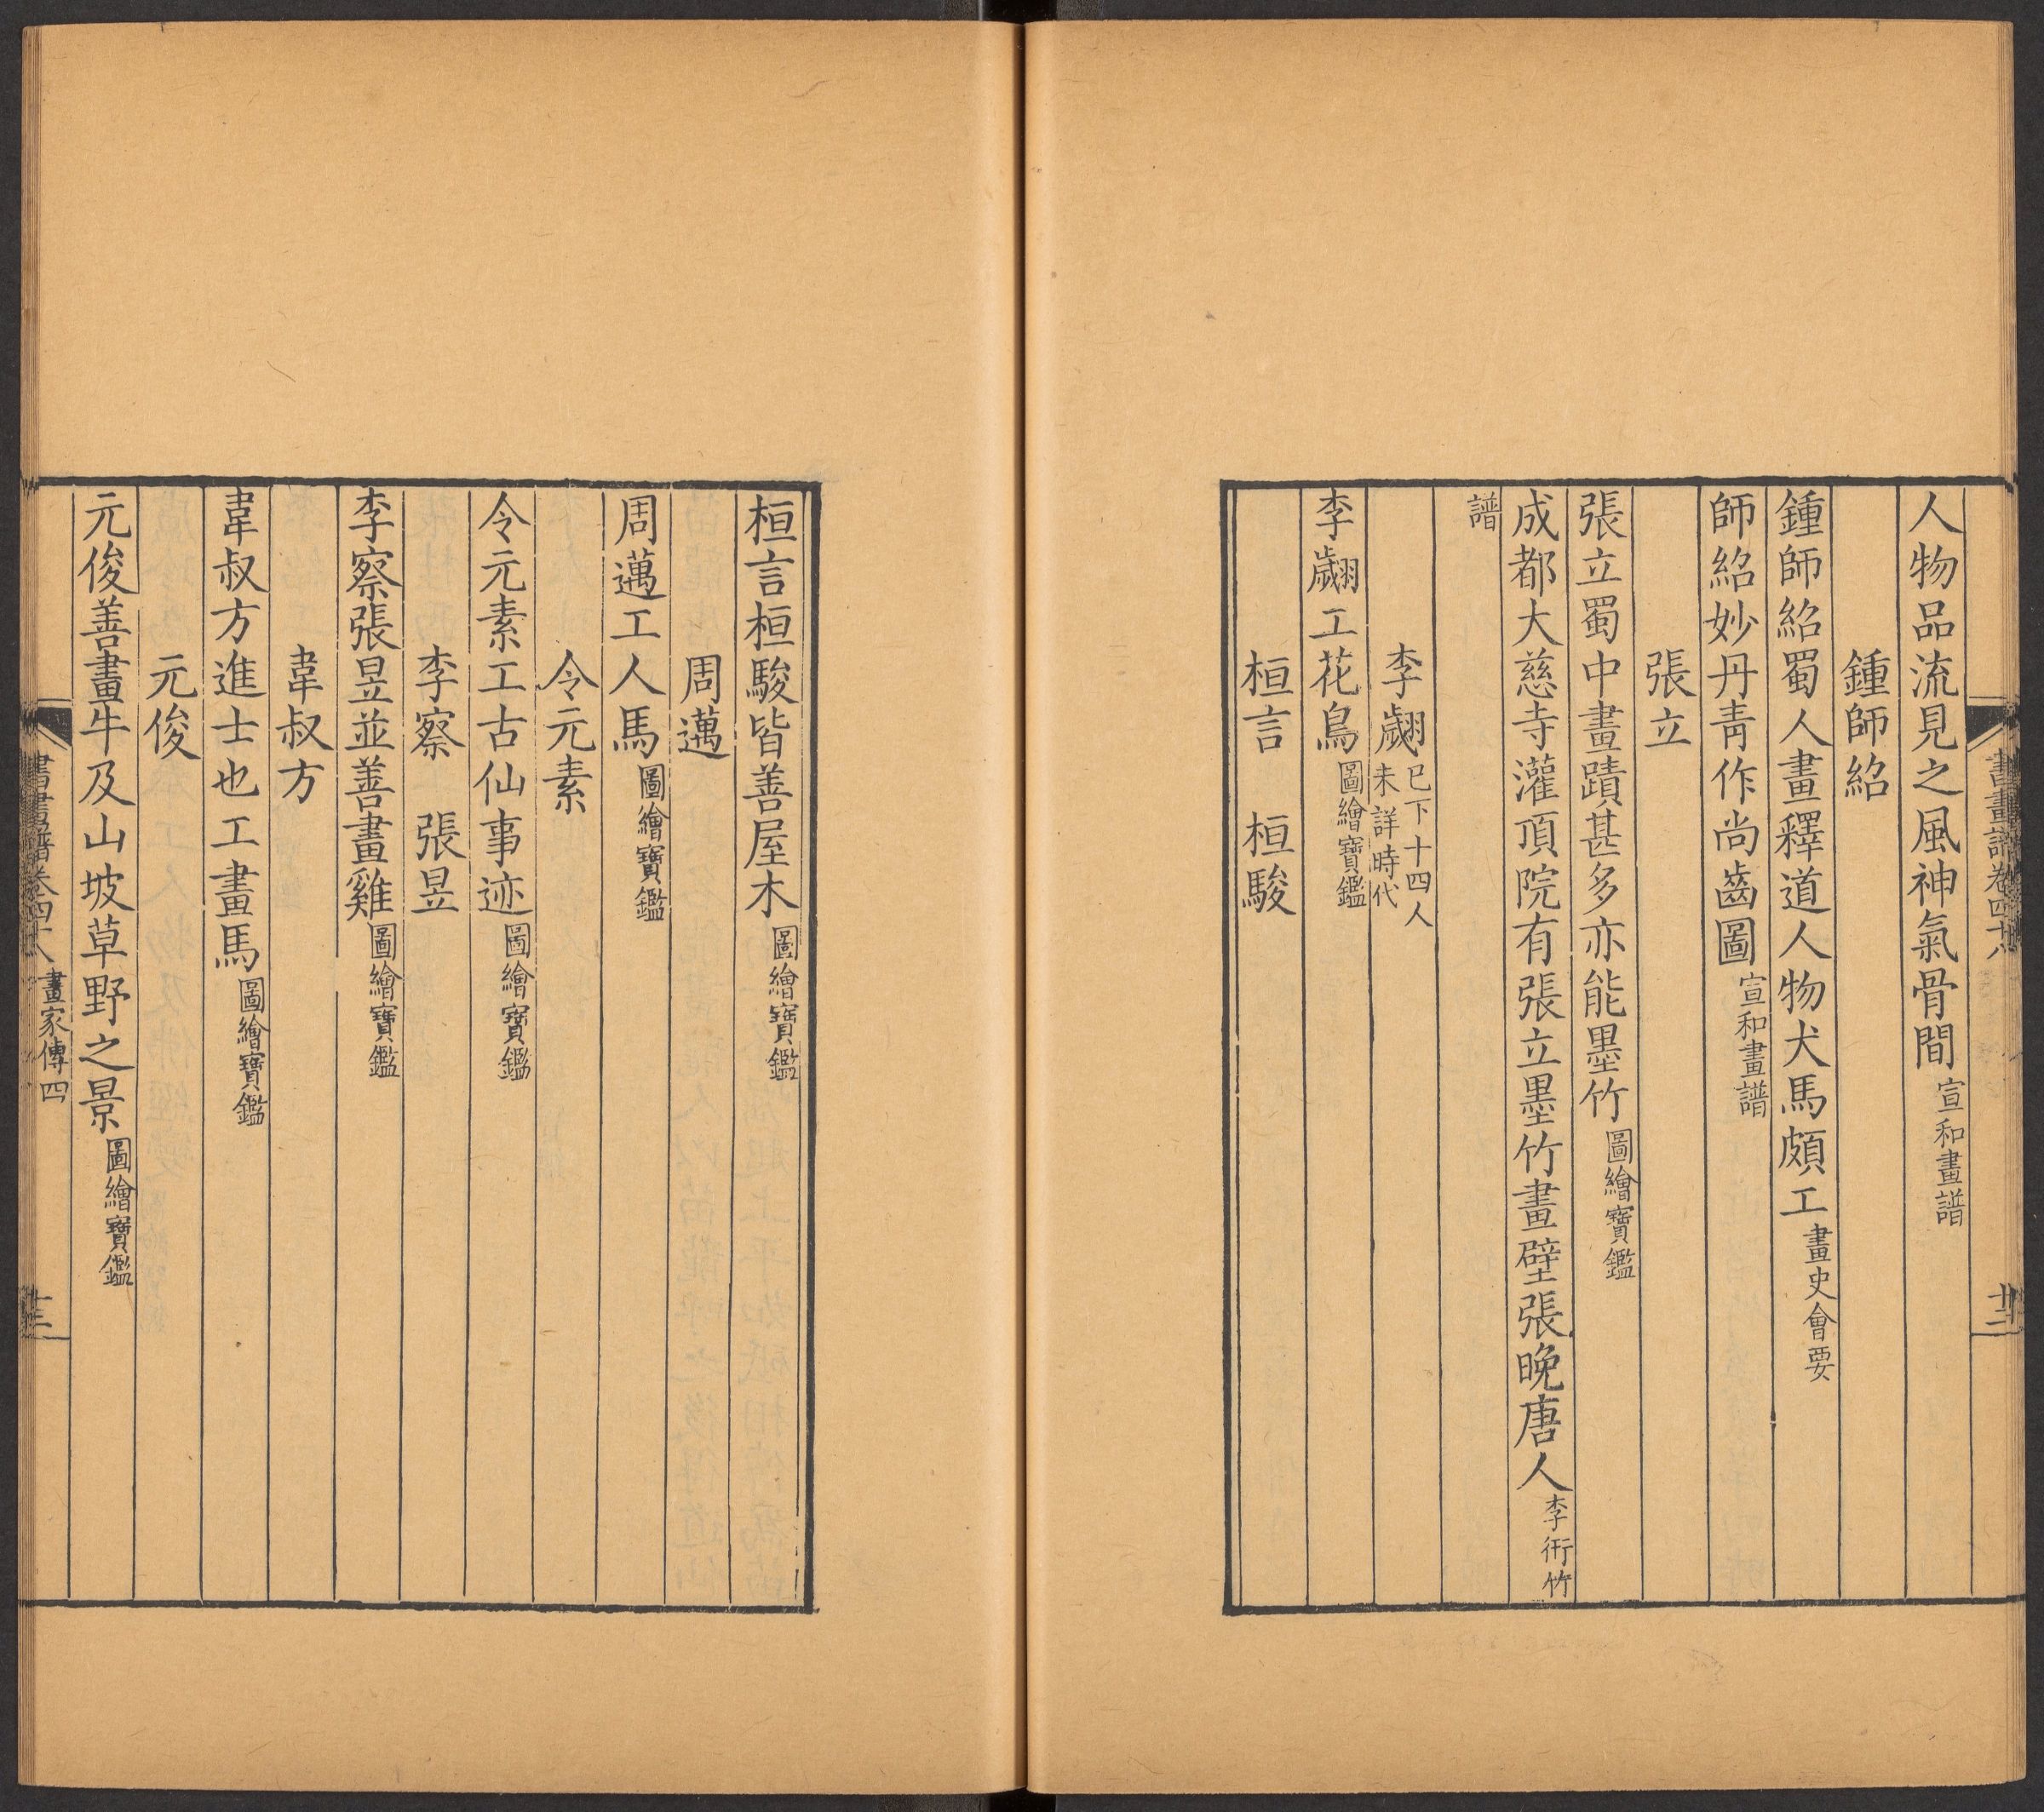 書畫譜卷四十八
人物品流見之風神氣骨間宣和畫譜
鍾師紹
鍾師紹蜀人畫釋道人物犬馬頗工畫史會要
師紹妙丹青作尚齒圖宣和畫譜
張立
張立蜀中畫蹟甚多亦能墨竹圖繪寶鑑
成都大慈寺灌頂院有張立墨竹畫壁張晚唐人李衎竹
譜
李翽已下十四人
未詳時代
李翽工花鳥圖繪寶鑑
桓言　桓駿
桓言桓駿皆善屋木圖繪寶鑑
周邁
周邁工人馬圖繪寶鑑
令元素
令元素工古仙事迹圖繪寶鑑
李察　張昱
李察張昱並善畫雞圖繪寶鑑
韋叔方
韋叔方進士也工畫馬圖繪寶鑑
元俊
元俊善畫牛及山坡草野之景圖繪寶鑑
書畫譜卷四十八　畫家傳四